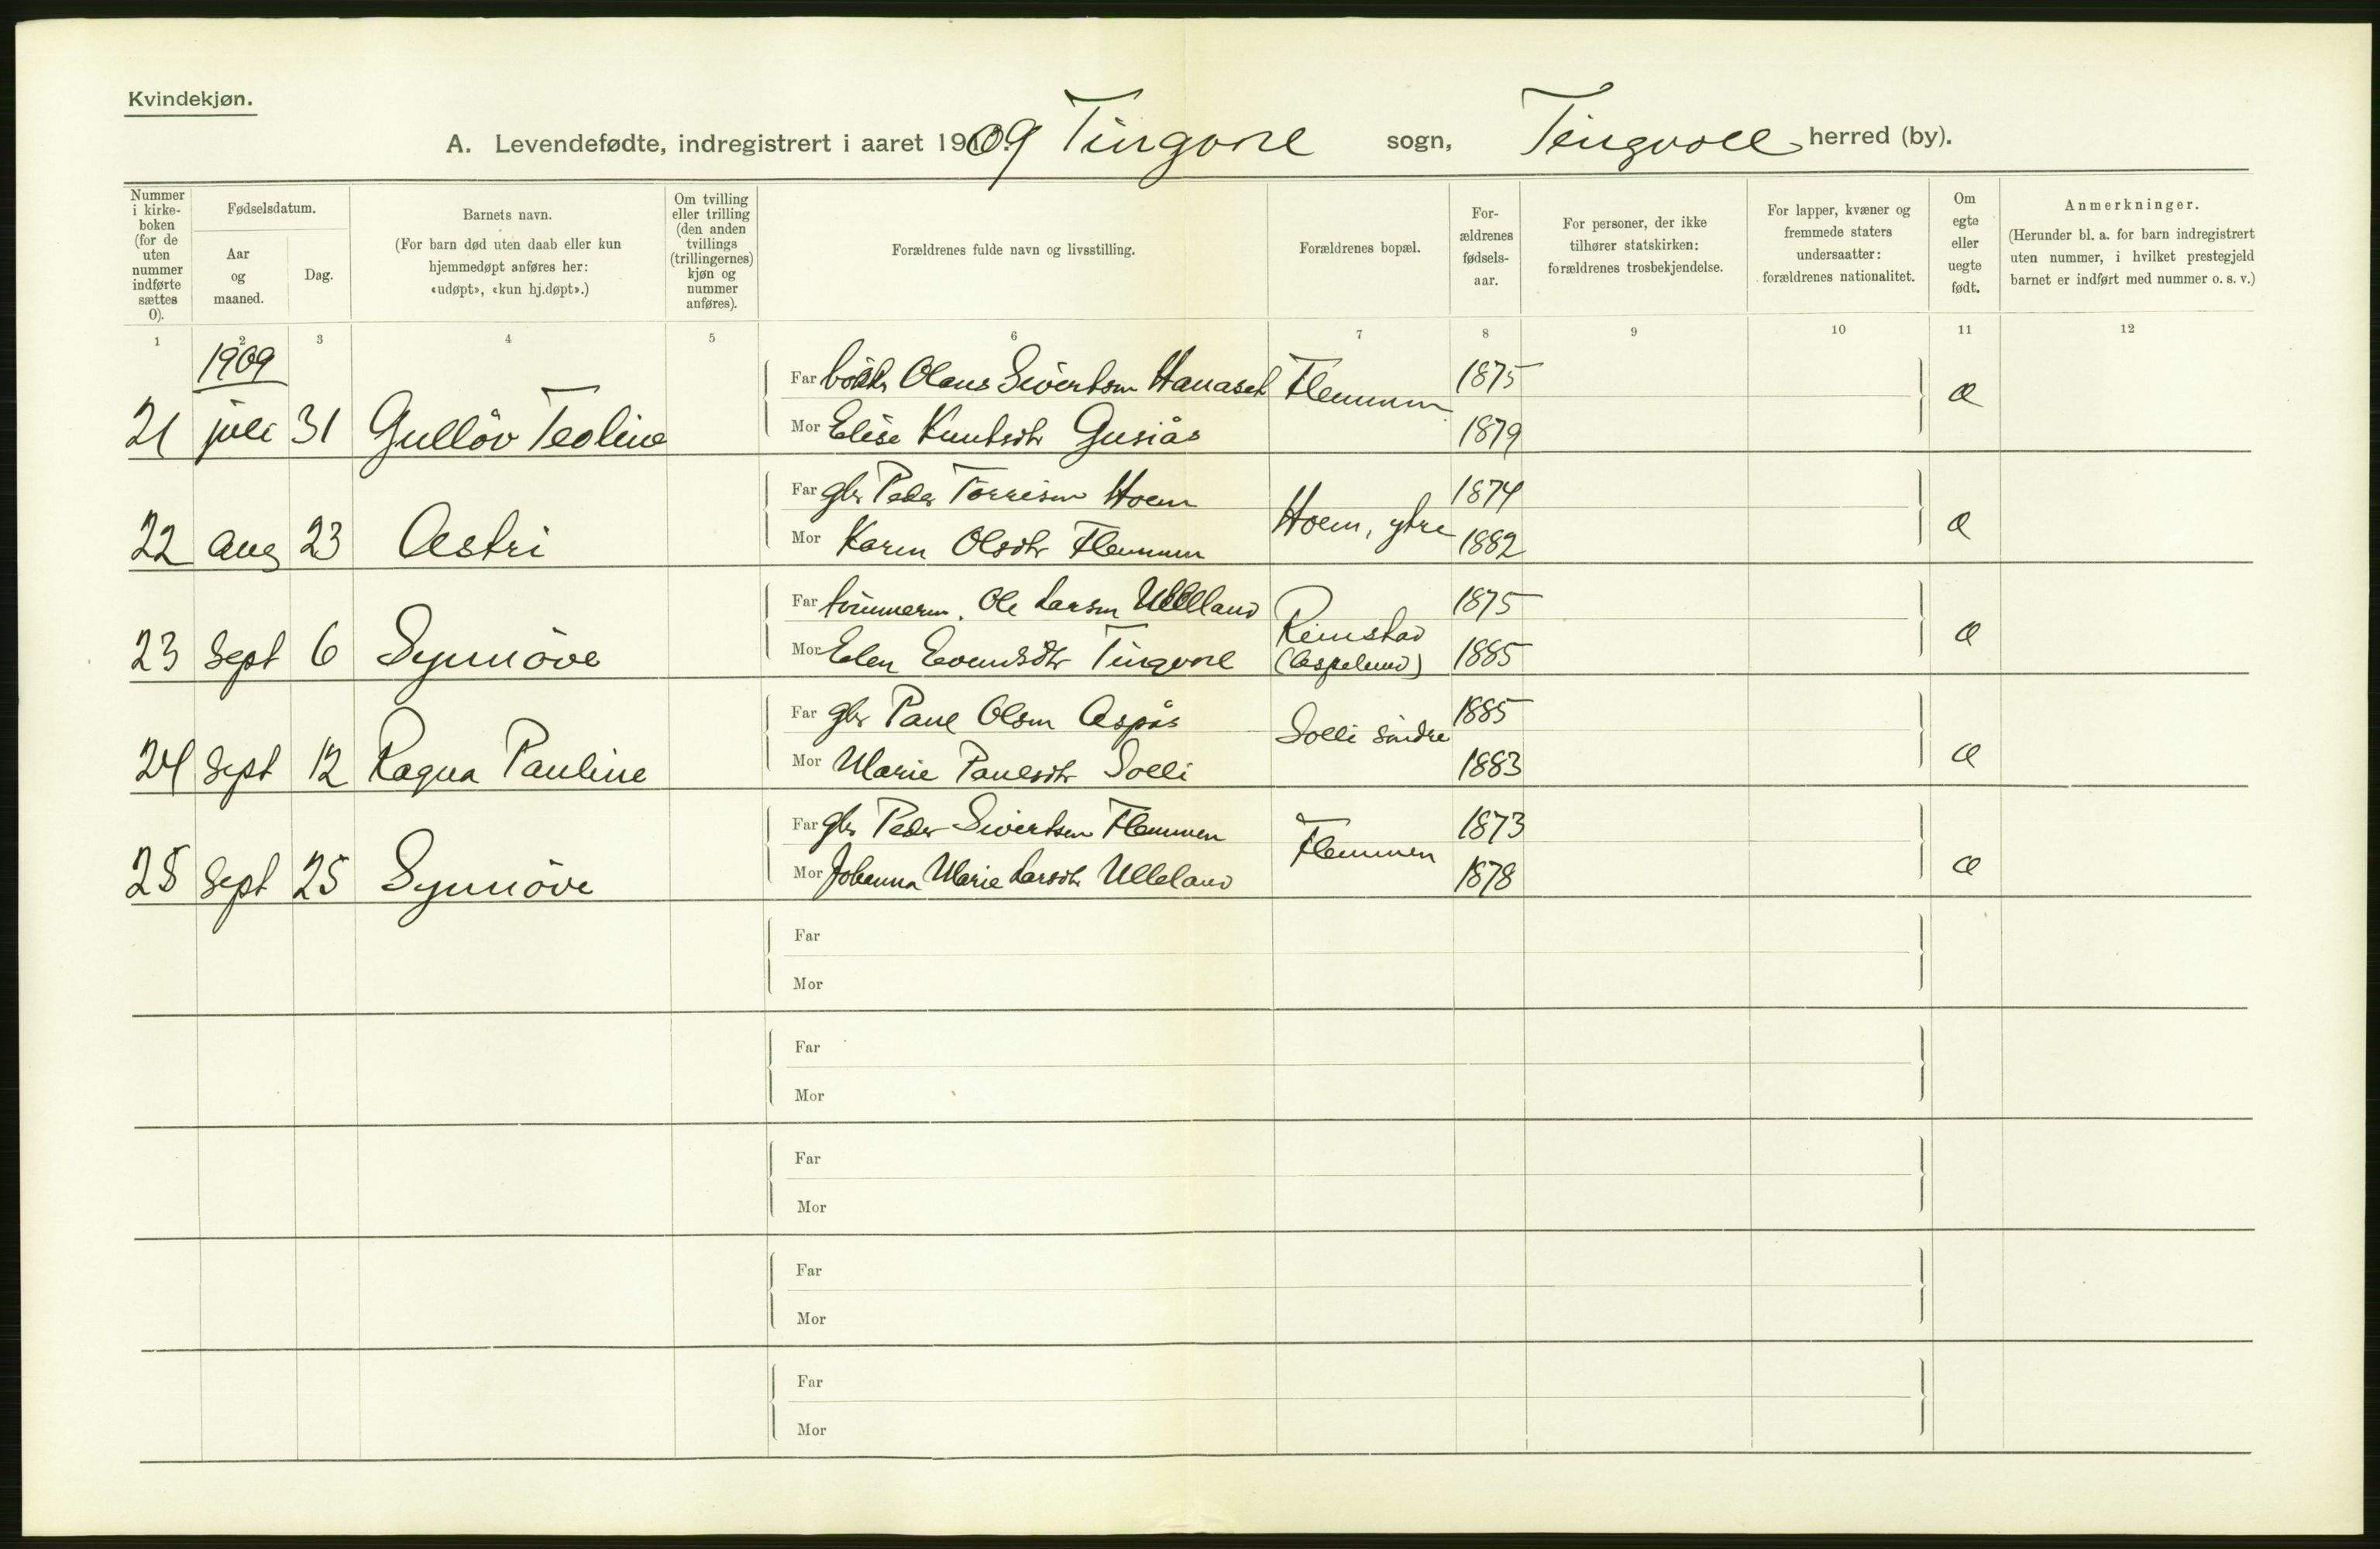 Kvindekjøn.
A. Levendefødte, indregistrert i aaret 1909 Tingvoll sogn, Tingvoll herred (by).
Nummer i kirke-boken (for de uten nummer indførte sættes 0).
Fødselsdatum.
Aar og maaned.
Dag.
Barnets navn.
(For barn død uten daab eller kun hjemmedøpt anføres her: «udøpt», «kun hj.døpt».)
Om tvilling eller trilling (den anden tvillings (trillingernes) kjøn og nummer anføres).
Forældrenes fulde navn og livsstilling.
Forældrenes bopæl.
For-ældrenes fødsels-aar.
For personer, der ikke tilhører statskirken: forældrenes trosbekjendelse.
For lapper, kvæner og fremmede staters undersaatter: forældrenes nationalitet.
Om egte eller uegte født.
Anmerkninger.
(Herunder bl. a. for barn indregistrert uten nummer, i hvilket prestegjeld barnet er indført med nummer o. s. v.)
1 2 3 4 5 6 7 8 9 10 11 12
1909
Far Olaus Sivertsen Hanaset Flemmen 1875
21 juli 31 Gulløv Teoline Mor Elise Knutsdtr Gusiås 1879 æ
Far gbr Peder Torrisen Hoem Hoem, ytre 1874
22 Aug 23 Astri Mor Karen Olsdtr Flemmen 1882 æ
Far tømmerm. Ole Larsen Ulleland Reinstad 1875
23 Sept 6 Synnøve Mor Elen Evensdtr Tingvoll (Aspelund) 1885 æ
Far gbr Paul Olsen Aspås Solli søndre 1885
24 Sept 12 Ragna Pauline Mor Marie Paulsdtr Solli 1883 æ
Far gbr Peder Sivertsen Flemmen Flemmen 1873
25 Sept 25 Synnøve Mor Johanna Marie Larsdtr Ulleland 1878 æ
Far
Mor
Far
Mor
Far
Mor
Far
Mor
Far
Mor